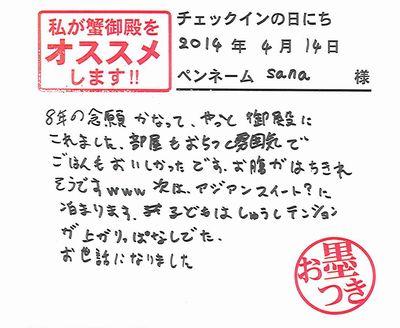 私が蟹御殿を
オススメ
します!!
チェックインの日にち
2014 年 4月 14日
ペンネーム sana 様
8年の念願 かなって、やっと 御殿に
これました、部屋もおちつと雰囲気で
ごはんもおいしかったです。お腹がはちきれ
そうですwww 次は、アジアンスイート?に
泊まります。子どもはしゅうしテンション
が上がりっぱなしでた、
お世話になりました
お墨つき